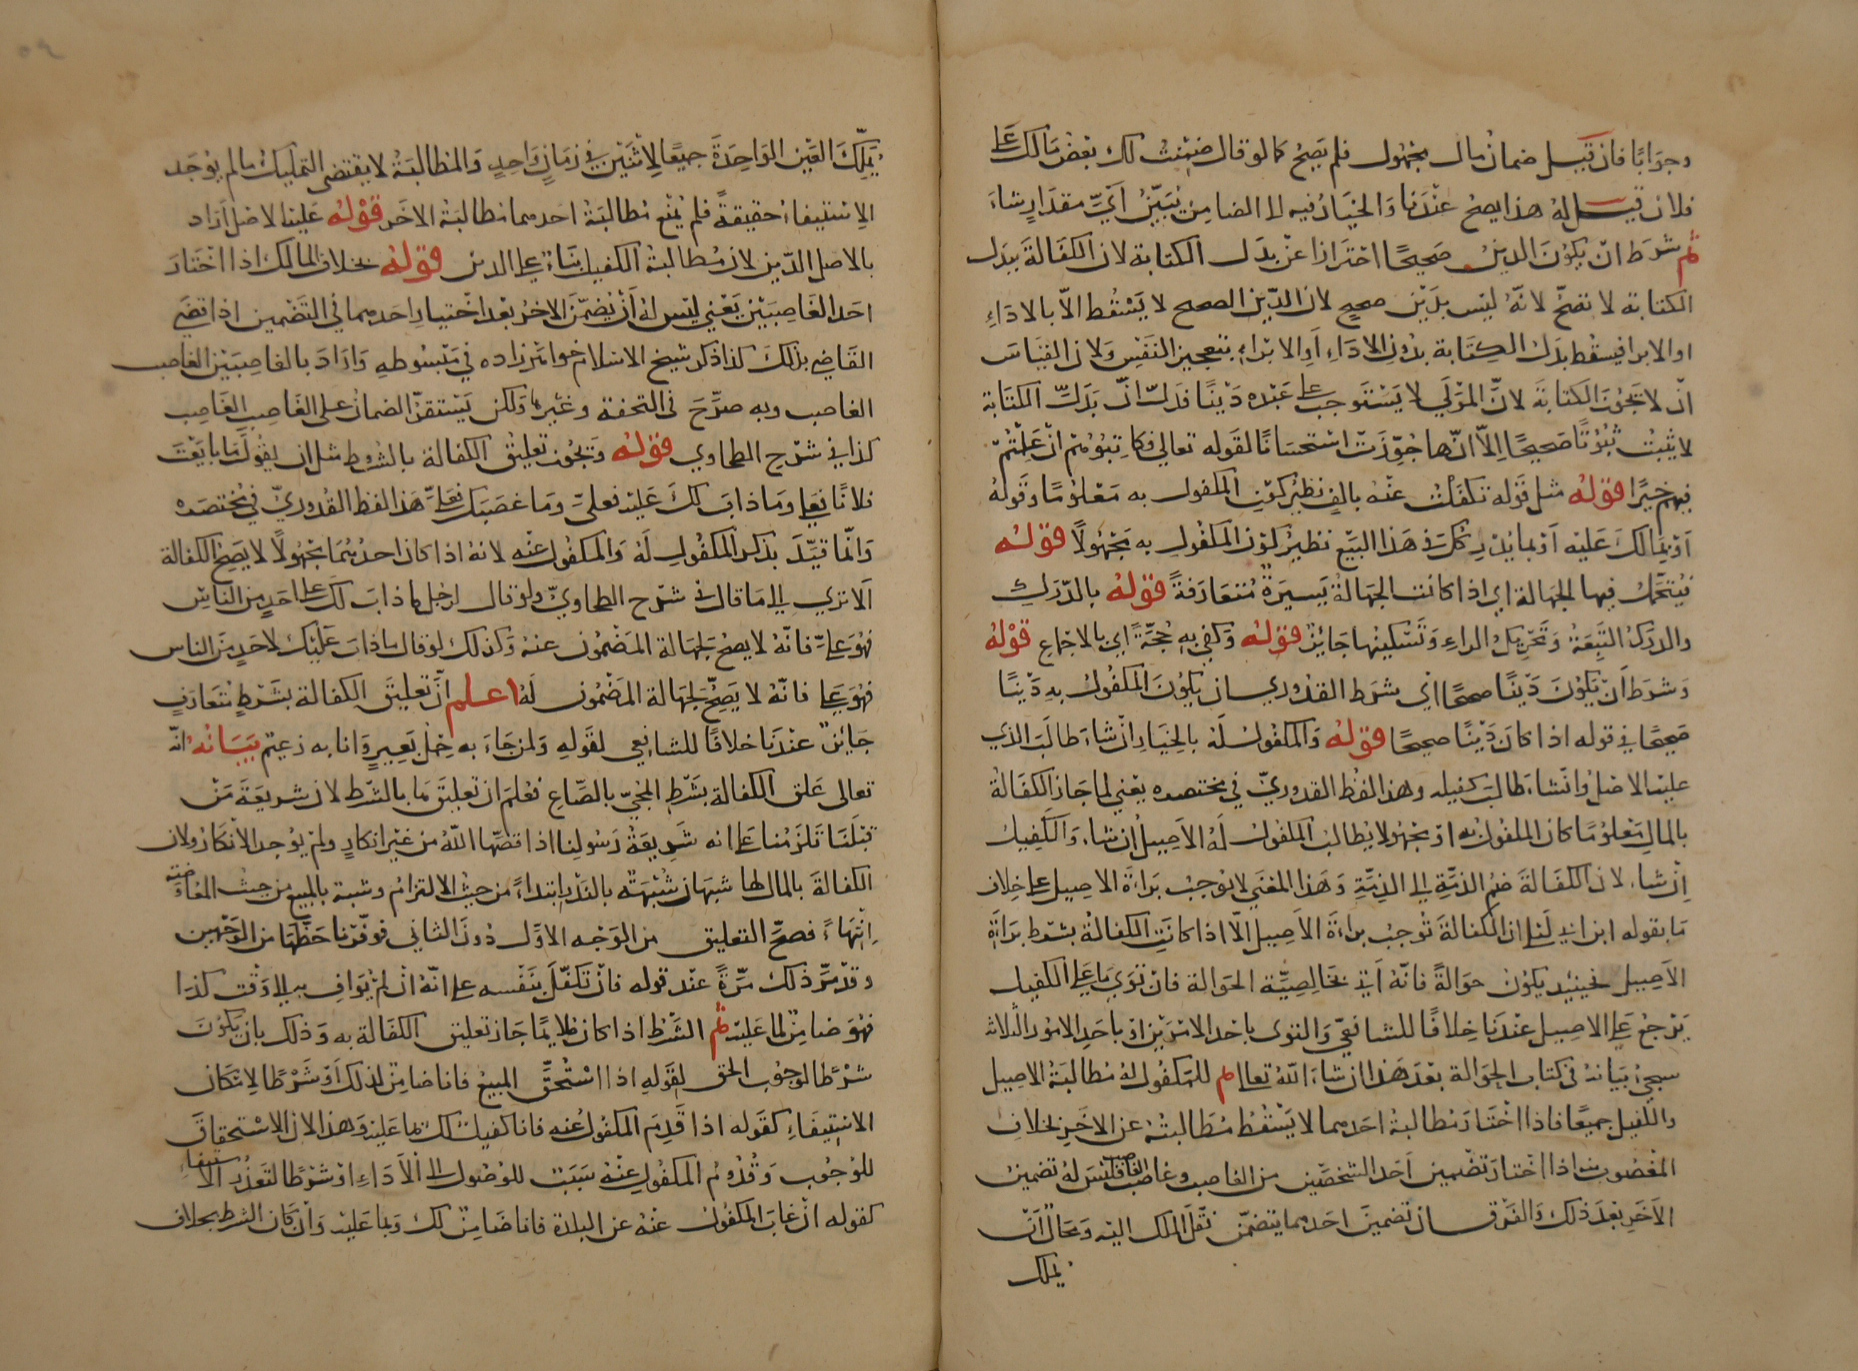 وجوابًا فان قيل ضمان مال مجهول فلم يصح كما لو قال ضمنت لك بعض مالك على
فلان قيل له هذا يصح عندنا والخيار فيه الى الضامن يبين أيّ مقدار شاء
ثم شرط ان يكون الدين صحيحًا احترازا عن بدل الكتابة لان الكفالة ببدل
الكتابة لا تصحّ لانّه ليس بدين صحيح لان الدين الصحيح لا يسقط الاّ بالاداء
او الابرا فيسقط بدل الكتابة بدون الاداء او الابراء بتعجيز النفس ولان القياس
انّ لا تجوز الكتابة لانّ المولي لا يستوجب على عبده دينًا فدلّ انّ بدل الكتابة
لا يثبت ثبوتًا صحيحًا الاّ انّها جوّزت استحسانًا لقوله تعالى فكاتبوهم ان علمتم
فيهم خيرًا قوله مثل قوله تكفلت عنه بالف نظير كون المكفول به معلومًا وقوله
او بمالك عليه او بما يدركك في هذا البيع نظير كون المكفول به مجهولاً قوله
فيتحمّل فيها الجهالة اي اذا كانت الجهالة يسيرة متعارفةً قوله بالدرك
والدرك التبعة وتحريك الراء وتسكينها جائز قوله وكفى به حجّةً اي بالاجماع قوله
وشرط أنّ يكون دينًا صحيحًا اي شرط القدوري ان يكون المكفول به دينًا
صحيحًا في قوله اذا كان دينًا صحيحًا قوله والمكفول له بالخيار انّ شاء طالب الذي
عليه الاصل وانّ شاء طالب كفيله وهذا لفظ القدوريّ في مختصره يعني لما جاز الكفالة
بالمال معلومًا كان المكفول به او مجهولا يطالب المكفول له الاصيل ان شاء والكفيل
إن شاء لان الكفالة ضم الذمّة الى الذمّة وهذا المعنى لا يوجب براءة الاصيل على خلاف
ما يقوله ابن ابي ليلى ان الكفالة توجب براءة الاصيل الاّ اذا كانت الكفالة بشرط براءة
الاصيل فحينئذ يكون حوالةً فانّه أتى بخالصيّة الحوالة فان توي ما على الكفيل
يرجع على الاصيل عندنا خلافًا للشافعيّ والتوى باحد الامرين او باحد الامور الثلاثة
سيجئ بيانه في كتاب الحوالة بعد هذا ان شاء اللّه تعالى ثم للمكفول له مطالبة الاصيل
والكفيل جميعًا فاذا اختار مطالبة احدهما لا يسقط مطالبته عن الاخر بخلاف
المغصوب منه اذا اختار تضمين احد الشخصين من الغاصب وغاصب الغاصب فليس له تضمين
الآخر بعد ذلك والفرق ان تضمين احدهما يتضمّن نقل الملك اليه ومحال أنّ
يملك
يملّك العين الواحدة جميعًا لاثنين في زمان واحد والمطالبة لا يقتضي التمليك ما لم يوجد
الاستيفاء حقيقةً فلم يمنع مطالبة احدهما مطالبة الاخر قوله علينا الاصل أراد
بالاصل الدّين لان مطالبة الكفيل بناء على الدين قوله بخلاف المالك اذا اختار
احد الغاصبين يعني ليس له أن يضمّن الاخر بعد اختيار احدهما في التضمين اذا قضى
القاضي بذلك كذا ذكر شيخ الاسلام خواهرزاده في مبسوطه واراد بالغاصبين الغاصب
الغاصب وبه صرّح في التحفة وغيرها ولكن يستقرّ الضمان على الغاصب الغاصب
كذا في شرح الطحاوي قوله ويجوز تعليق الكفالة بالشروط مثل ان يقول ما بايعت
فلانًا فعلي وما ذاب لك عليه فعليّ وما غصبك فعليّ هذا لفظ القدوريّ في مختصره
وانّما قيّد بذكر المكفول له والمكفول عنه لانه اذا كان احدهما مجهولاً لا يصح الكفالة
ألا ترى الى ما قال في شرح الطحاويّ ولو قال لرجل ما ذاب لك على احد من الناس
فهو عليّ فانّه لا يصح لجهالة المضمون عنه وكذلك لو قال ما ذاب عليك لاحد من الناس
فهو على فانّه لا يصحّ لجهالة المضمون له اعلم أنّ تعليق الكفالة بشرط متعارف
جائز عندنا خلافًا للشافعي لقوله ولمن جاء به حمل بعير وانا به زعيم بيانه انّه
تعالى علق الكفالة بشرط المجيّ بالصّاع فعلم ان تعليقها بالشرط لان شريعة من
قبلنا تلزمنا على انه شريعة رسولنا اذا قصّها اللّه من غير انكار ولم يوجد الانكار ولان
الكفالة بالمال لها شبهان شبهة بالنذر ابتداءً من حيث الالتزام وشبه بالبيع من حيث المعاوضة
انتهاءً فصحّ التعليق من الوجه الاوّل دون الثاني فوفّرنا حظّها من الوجهين
وقد مرّ ذلك مرّةً عند قوله فان تكفّل بنفسه على انّه ان لم يواف به الى وقت كذا
فهو ضامن لما عليه ثم الشرط اذا كان ملائمًا جاز تعليق الكفالة به وذلك بان يكون
شرطًا لوجوب الحق لقوله اذا استحقّ المبيع فانا ضامن لذلك أو شرطًا لامكان
الاستيفاء كقوله اذا قدم المكفول عنه فانا كفيل لك بما عليه وهذا لان الاستحقاق
للوجوب وقدوم المكفول عنه سبب للوصول الى الاداء او شرطًا لتعذر الاستيفاء
كقوله ان غاب المكفول عنه عن البلدة فانا ضامن لك وبما عليه وان كان الشرط بخلاف